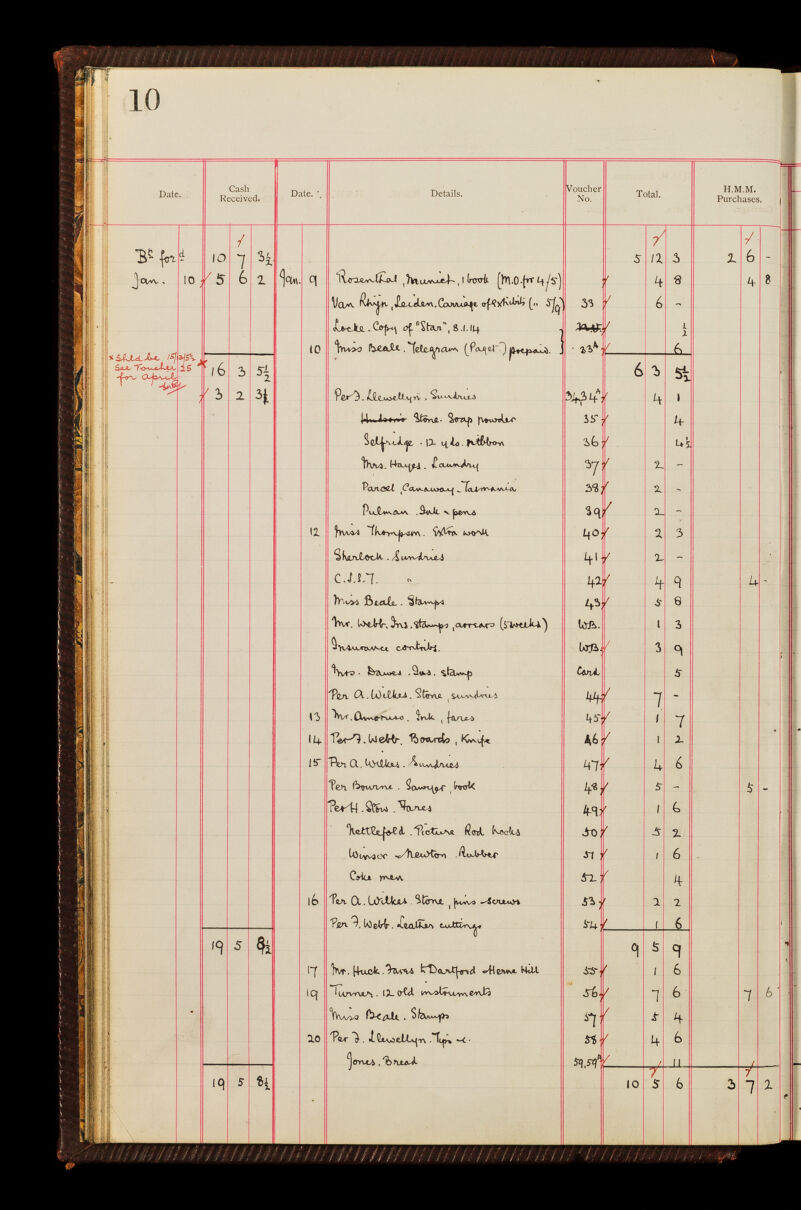 10
Date. Cash Received. Date. Details. Voucher No. Total. H.M.M. Purchases.
Bt ford 10 7 3½ 5 12 3 2 6 -
Jan. 10 5 6 2 Jan. 9 Rosenthal, Munich, 1 book (M.O. for 4/5) 4 8 4 8
Van Rhijn, Leiden. Carriage of exhibits (" 5/9) 33 6 -
Locke. Copy of "Star", 8.1.14 ½
10 Miss Beale. Telegram (Paget) prepaid. 33A 6
x Shld. be 15/3/5½
See Voucher 25
for April
16 3 5½ 6 3 5½
3 2 3½ Per J. Llewellyn. Sundries 34,34A 4 1
Hudson's Stone. Soap powder 35 4
Selfridge. 12 yds. ribbon 36 4½
Mrs. Hayes. Laundry 37 2 -
Parcel, Canaway. Tasmania 38 2 -
Pulman. Ink & pens 39 2 -
12 Miss Thompson. Extra work 40 2 3
Sherlock. Sundries 41 2 -
C.J.S.T. " 42 4 9 4 -
Miss Beale. Stamps 43 5 8
Mr. Webb. Ins. stamps, arrears (5 weeks) W.B. 1 3
Insurance contribs. W.B. 3 9
Mrs. Dawes. Ins. stamp Card. 5
Per A. Wilkes. Stone, sundries 44 7 -
13 Mr. Amoruso. Ink, fares 45 1 7
14 Per J. Webb. Boards, Knife 46 1 2
15 Per A. Wilkes. Sundries 47 4 6
Per Bourne. Sawyer, book 48 5 - 5 -
Per H. Stow. Fares 49 1 6
Nettlefold. Picture Rod hooks 50 5 2
Winsor & Newton. Rubber 51 1 6
Coke men 52 4
16 Per A. Wilkes. Stone, pins & screws 53 2 2
Per J. Webb. Leather cuttings 54 1 6
19 5 8½ 9 5 9
17 Mr. Huck. Fares to Dartford & Herne Hill 55 1 6
19 Turner. 12 old instruments 56 7 6 7 6
Miss Beale. Stamps 57 5 4
20 Per J. Llewellyn. Tips &c. 58 4 6
Jones, Bread 59,59A 11
19 5 8½ 10 5 6 3 7 2